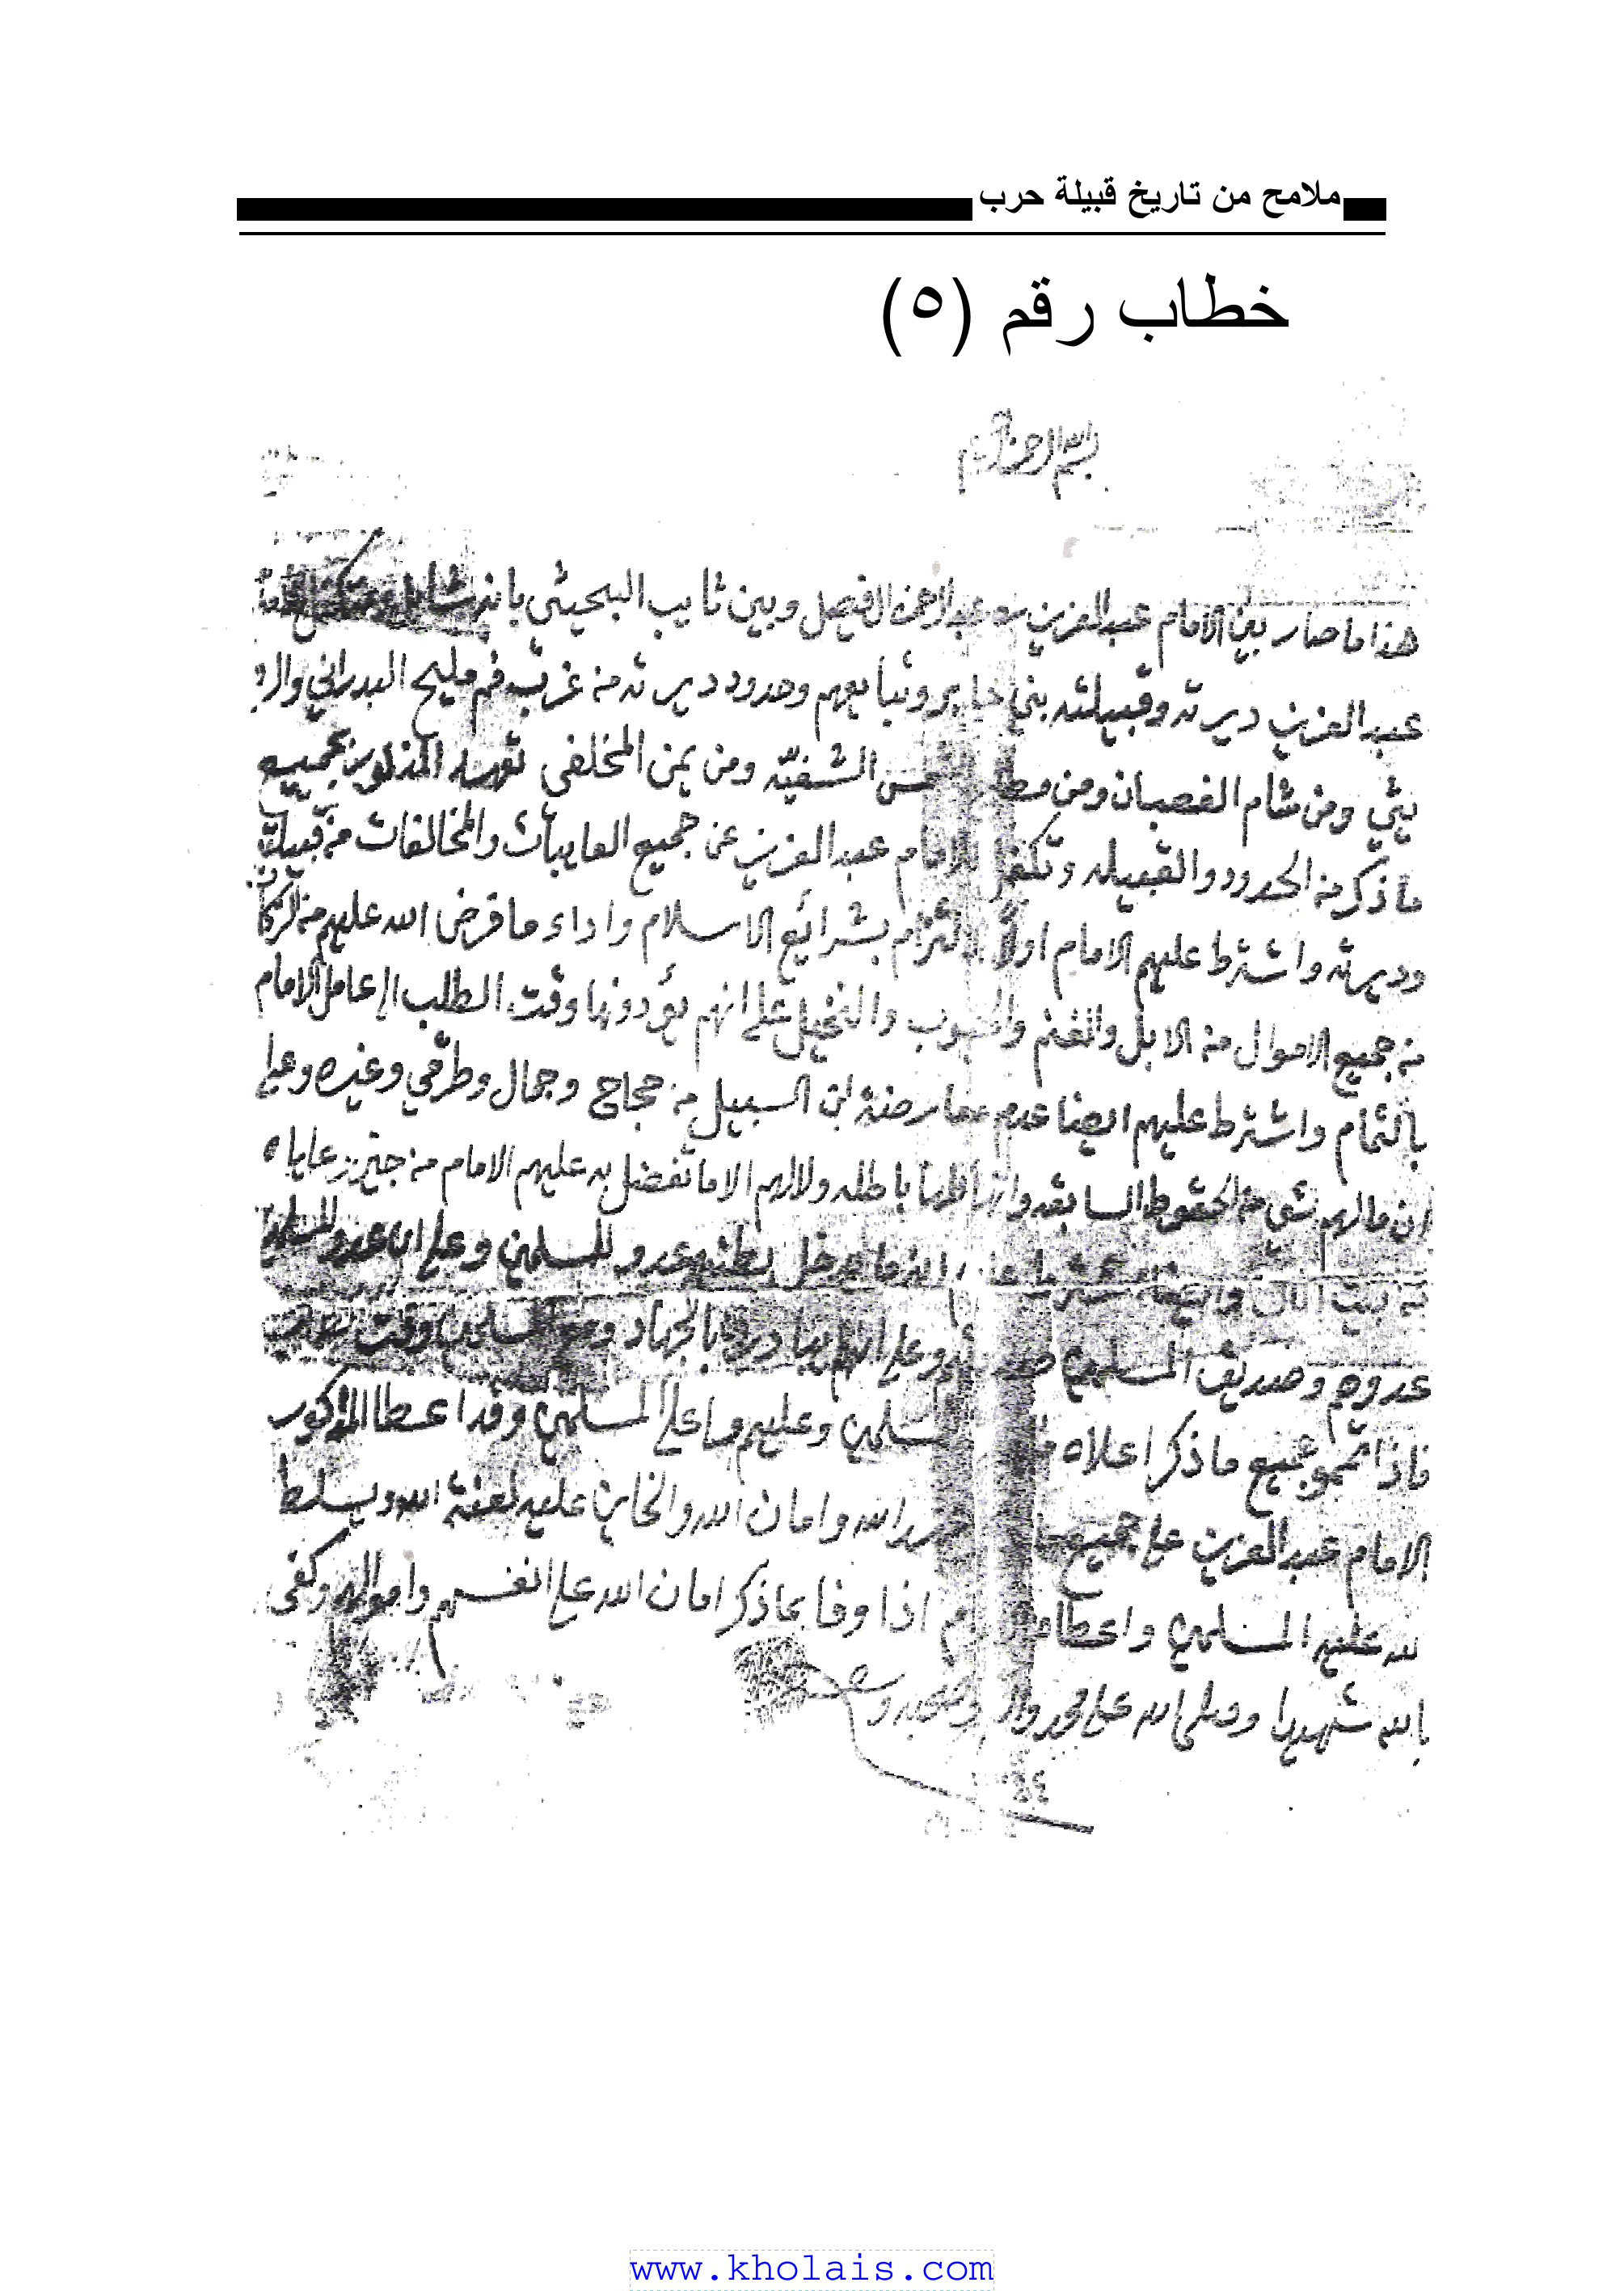 ملامح من تاريخ قبيلة حرب
خطاب رقم (٥)
بسم الله الرحمن الرحيم
هذا ما صار بين الامام عبد العزيز بن عبد الرحمن الفيصل وبين ثايب البحيثي بانه
عبد العزيز ديرته وقبيلته بني جابر وتبايعهم وحدود ديرته من غرب فم مليح البدراني
ومن شام الغصبان ومن الشفيّه ومن يمن المخلفي المذكور بجميع
ما ذكر من الحدود والقبيله وتكفل للامام عبد العزيز عن جميع العايبات والمخالفات من قبيلته
وديرته واشترط عليهم الامام اولاً الالتزام بشرائع الاسلام واداء ما فرض الله عليهم من الزكاة
من جميع الاموال من الابل والغنم والحبوب والنخيل على انهم يؤدونها وقت الطلب الى عامل الامام
بالتمام واشترط عليهم ايضا عدم معارضة ابن السبيل من حجاج وجمال وطرقي وغيره وعلى
ان مالهم شي من الحقوق السابقه وانها كلها باطله ولالهم الا ما تفضل به عليهم الامام من رعاياه
من بيت المال وايضا يدخل عدو للمسلمين وعلى ان عدو المسلمين
عدوهم وصديق المسلمين وعلى بالجهاد وقت
فاذا تممو جميع ما ذكر اعلاه المسلمين وعليهم ما على المسلمين وقد اعطا المذكور
الامام عبد العزيز على جميع الله وامان الله والخاين عليه لعنة الله ويسلط
الله عليه المسلمين واعطاه اذا وفا بما ذكر امان الله على انفسهم واموالهم وكفى
بالله شهيدا وصلى الله على محمد وصحبه وسلم
www.kholais.com